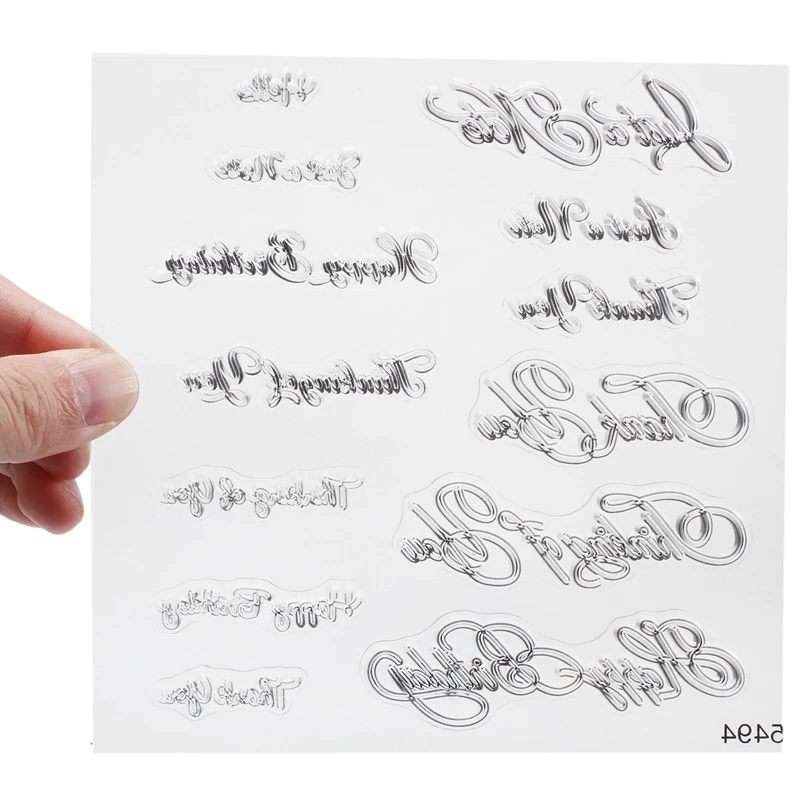 Hello
Just a Note
Happy Birthday
Thinking of You
Thinking of You
Happy Birthday
Thank You
Just a Note
Just a Note
Thank You
Thank You
Thinking of You
Happy Birthday
5494